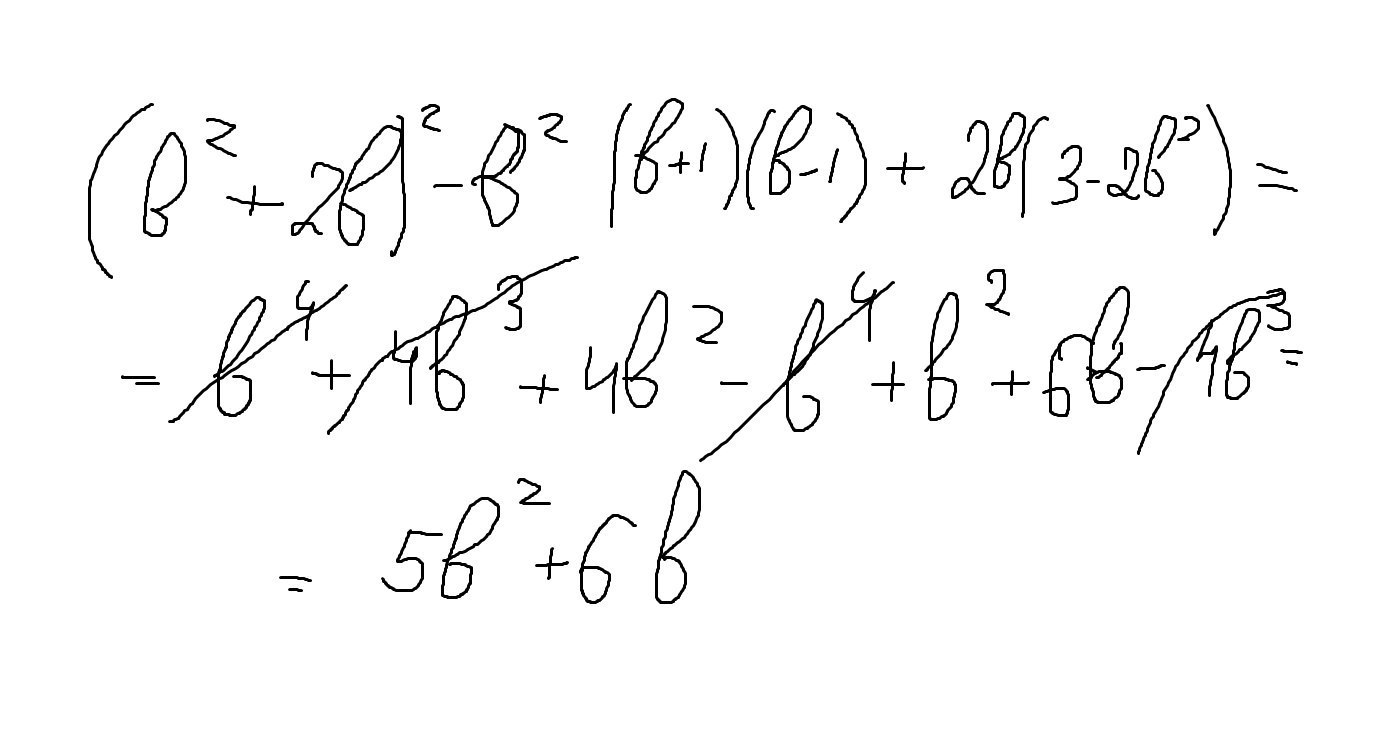 (b²+2b)²-b² (b+1)(b-1)+2b(3-2b²)=
=b⁴+4b³+4b²-b⁴+b²+6b-4b³=
=5b²+6b